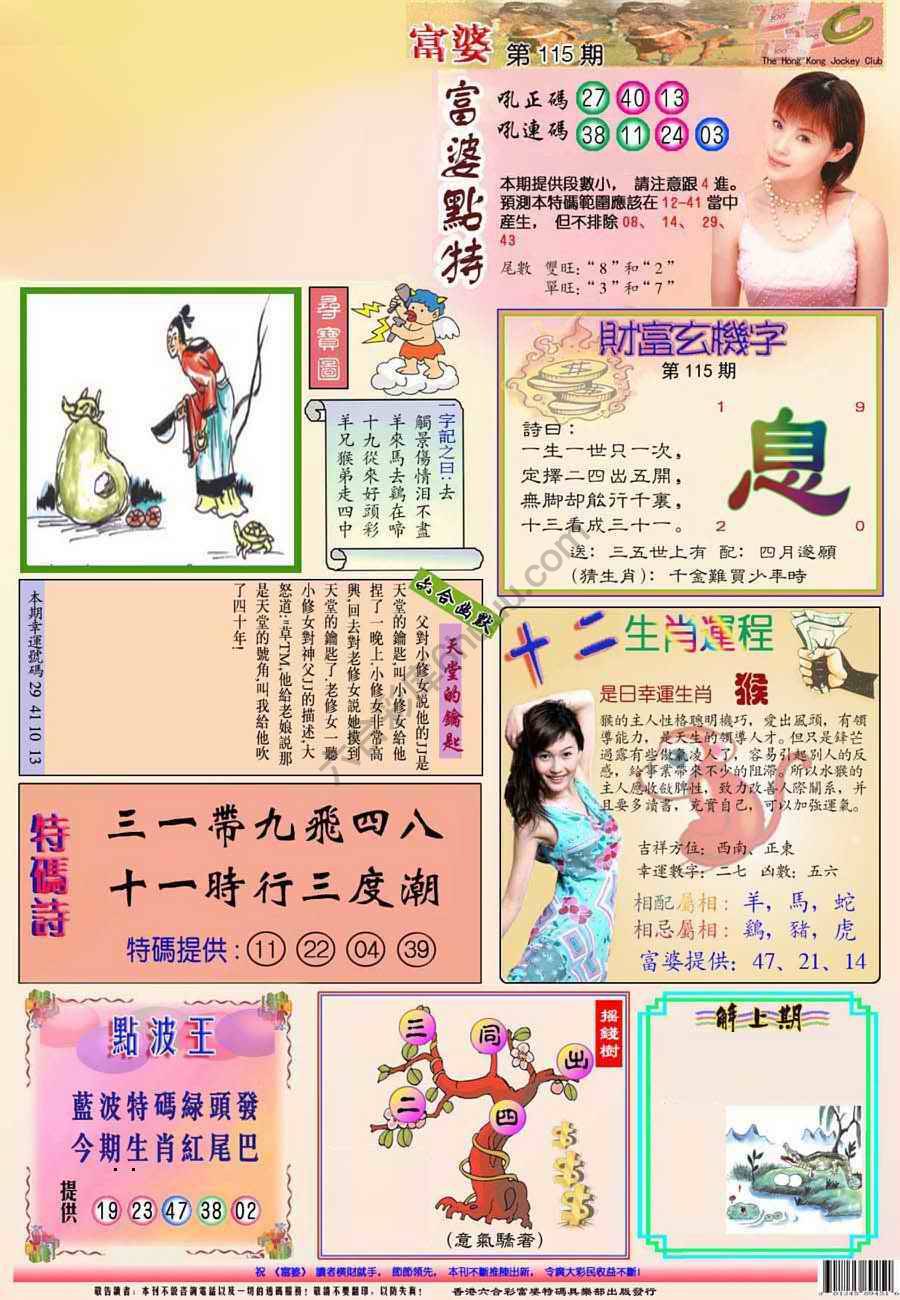 富婆 第115期
The Hong Kong Jockey Club
富婆點特
吼正碼 27 40 13
吼連碼 38 11 24 03
本期提供段數小，請注意跟4進。
預測本特碼範圍應該在12-41當中
産生，但不排除08、14、29、
43
尾數 雙旺:“8”和“2”
單旺:“3”和“7”
尋寶圖
一字記之曰:去
觸景傷情泪不盡
羊來馬去鷄在啼
十九從來好頭彩
羊兄猴弟走四中
財富玄機字
第115期
詩曰:
一生一世只一次，
定擇二四出五開，
無脚却能行千裏，
十三看成三十一。
1 9
息
2 0
送: 三五世上有 配: 四月遂願
(猜生肖): 千金難買少年時
六合幽默
天堂的鑰匙
父對小修女説他的JJ是
天堂的鑰匙,叫小修女給他
捏了一晚上.小修女非常高
興,回去對老修女説她摸到
天堂的鑰匙了.老修女一聽
小修女對神父JJ的描述,大
怒道:"草.TM,他給老娘説那
是天堂的號角,叫我給他吹
了四十年!
本期幸運號碼 29 41 10 13
十二生肖運程
是日幸運生肖 猴
猴的主人性格聰明機巧，愛出風頭，有領
導能力，是天生的領導人才。但只是鋒芒
過露有些傲氣凌人了，容易引起别人的反
感，給事業帶來不少的阻滯。所以水猴的
主人應收斂脾性，致力改善人際關系，并
且要多讀書，充實自己，可以加強運氣。
吉祥方位: 西南、正東
幸運數字: 二七 凶數: 五六
相配屬相: 羊，馬，蛇
相忌屬相: 鷄，豬，虎
富婆提供: 47、21、14
特碼詩
三一帶九飛四八
十一時行三度潮
特碼提供: 11 22 04 39
點波王
藍波特碼緑頭發
今期生肖紅尾巴
提供 19 23 47 38 02
摇錢樹
三 同 出
二 四
(意氣驕奢)
解上期
祝《富婆》讀者横財就手，節節領先，本刊不斷推陳出新，令廣大彩民收益不斷!
敬告讀者：本刊不設咨詢電話以及一切的透碼服務！敬請不要翻印，以防失真！
香港六合彩富婆特碼俱樂部出版發行